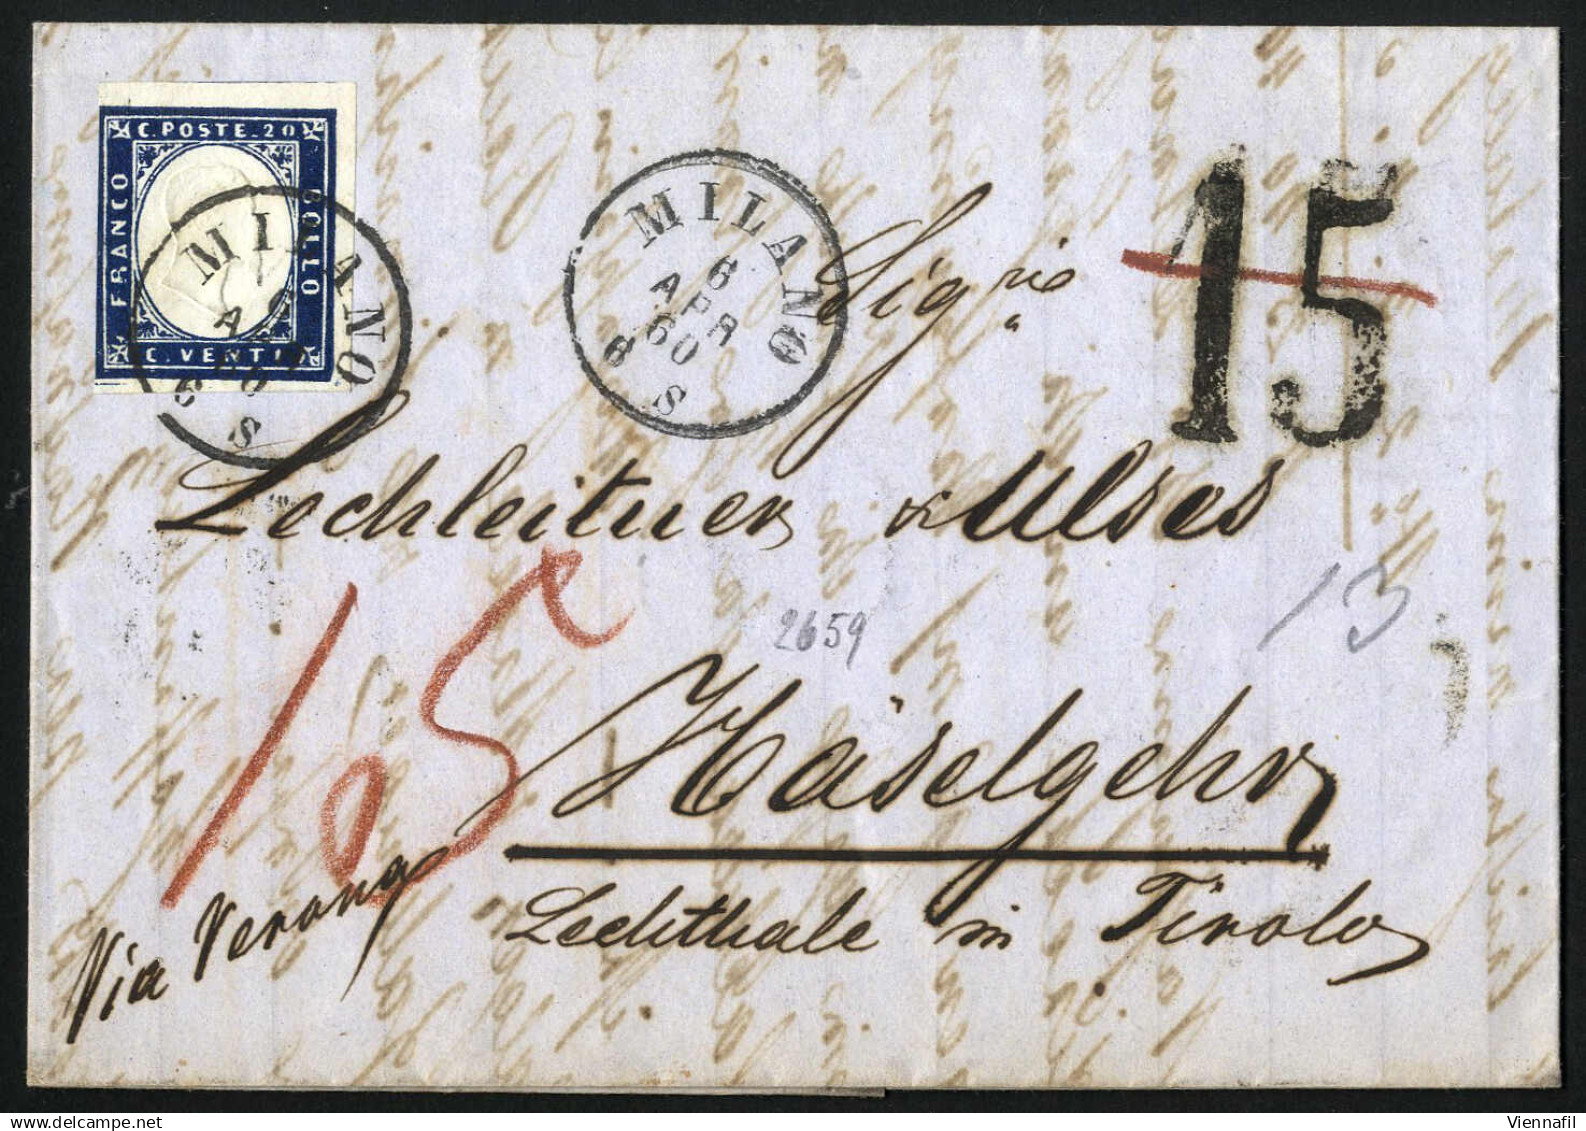 C. POSTE. 20
FRANCO
BOLLO
C. VENTI
MILANO
60
S
MILANO
6
APR
60
8 S
15
Sig.rie
Lechleitner & Ulses
15
2659
13
Häselgehr
Via Verona
Lechthale in Tirolo
Viennafil